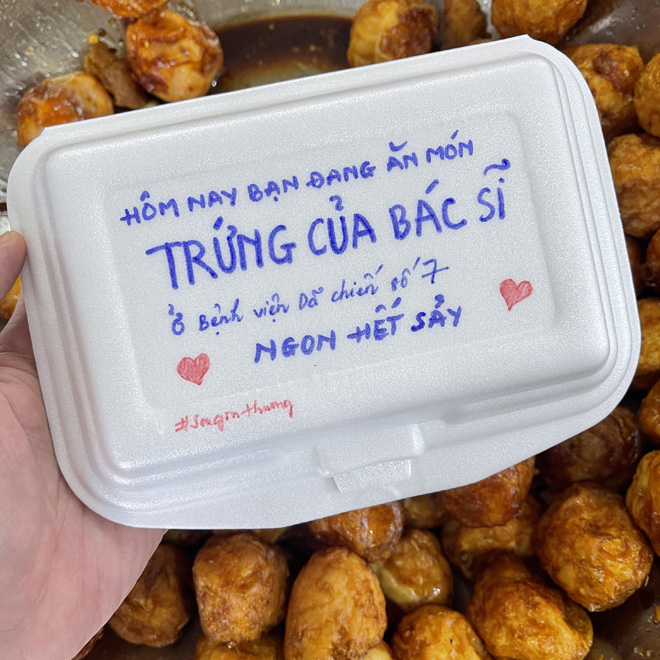 HÔM NAY BẠN ĐANG ĂN MÓN
TRỨNG CỦA BÁC SĨ
ở Bệnh viện Dã chiến số 7
NGON HẾT SẢY
#Saigonthuong